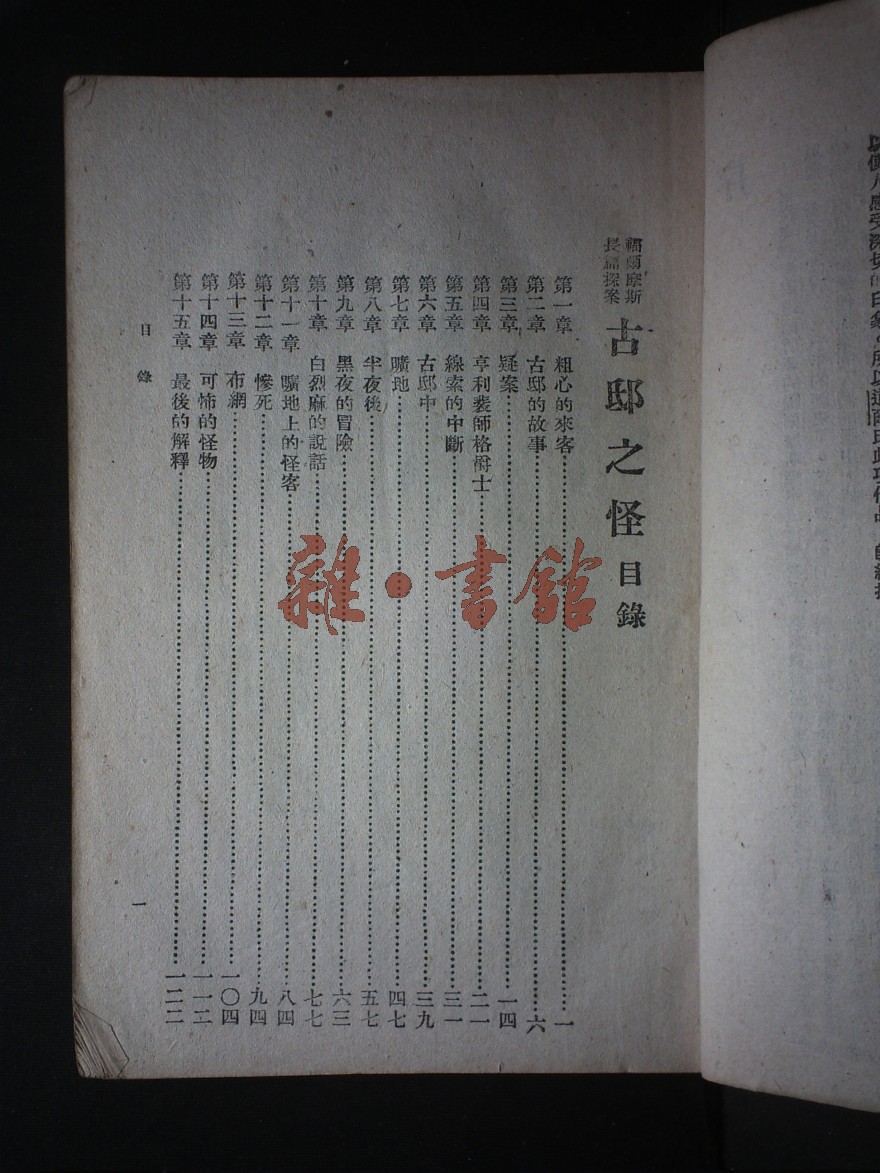 福爾摩斯
長篇探案
古邸之怪 目錄
第一章 粗心的來客……一
第二章 古邸的故事……六
第三章 疑案……一四
第四章 亨利裴師格爵士……二一
第五章 線索的中斷……三一
第六章 古邸中……三九
第七章 曠地……四七
第八章 半夜後……五七
第九章 黑夜的冒險……六三
第十章 白烈麻的説話……七七
第十一章 曠地上的怪客……八四
第十二章 慘死……九四
第十三章 布網……一〇四
第十四章 可怖的怪物……一一二
第十五章 最後的解釋……一二二
目錄
一
雜·書館